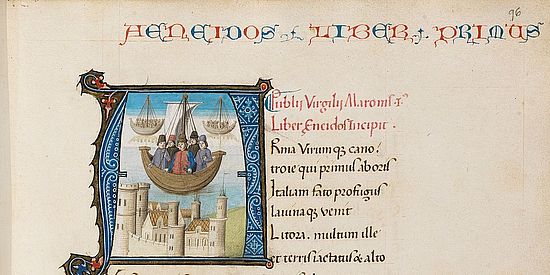 96
AENEIDOS LIBER PRIMUS
Publij Virgilij Maronis
Liber Eneidos Incipit.
Arma Virumq; cano
troie qui primus ab oris
Italiam fato profugus
lavinaq; venit
Litora. multum ille
et terris iactatus & alto